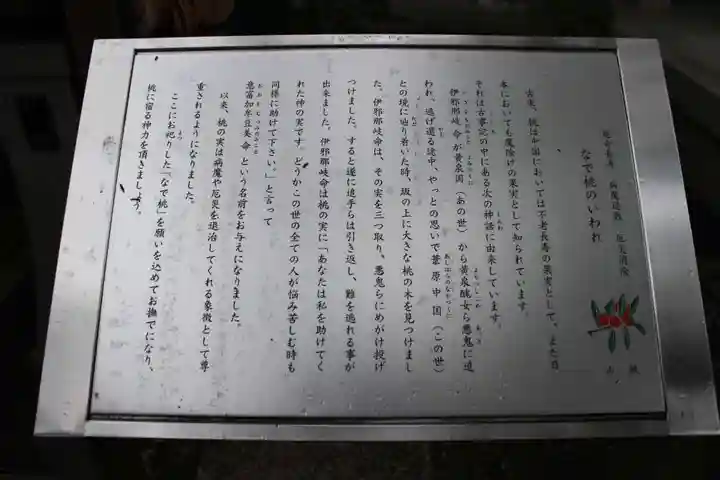 病魔退散 厄災消除
なで桃のいわれ
古来、桃は中国においては不老長寿の果実として、また日
本においても魔除けの果実として知られています。
それは古事記の中にある次の神話に由来しています。
伊邪那岐命が黄泉国（あの世）から黄泉醜女ら悪鬼に追
われ、逃げ還る途中、やっとの思いで葦原中国（この世）
との境に辿り着いた時、坂の上に大きな桃の木を見つけまし
た。伊邪那岐命は、その実を三つ取り、悪鬼らにめがけ投げ
つけました。すると遂に追手らは引き返し、難を逃れる事が
出来ました。伊邪那岐命は桃の実に「あなたは私を助けてく
れた神の実です。どうかこの世の全ての人が悩み苦しむ時も
同様に助けて下さい。」と言って
意富加牟豆美命 という名前をお与えになりました。
以来、桃の実は病魔や厄災を退治してくれる象徴として尊
重されるようになりました。
ここにお祀りした「なで桃」を願いを込めてお撫でになり、
桃に宿る神力を頂きましょう。